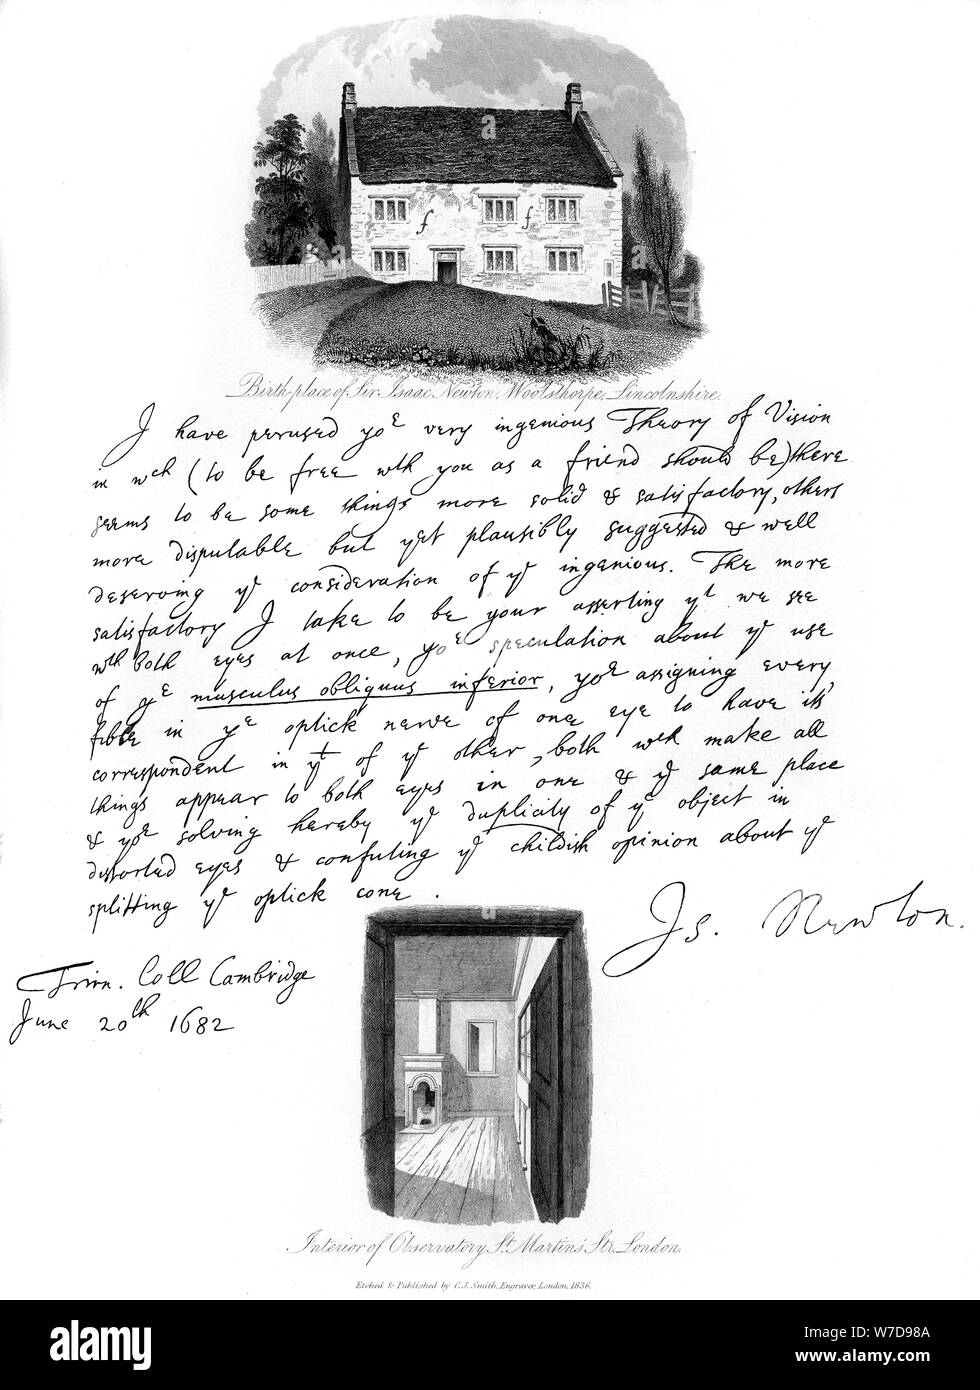 Birth-place of Sir Isaac Newton, Woolsthorpe, Lincolnshire.
I have perused yoᵉ very ingenious Theory of Vision
in wch (to be free wth you as a friend should be) there
seems to be some things more solid & satisfactory, others
more disputable but yet plausibly suggested & well
deserving yᵉ consideration of yᵉ ingenious. The more
satisfactory I take to be your asserting yt we see
wth both eyes at once, yoᵉ speculation about yᵉ use
of yᵉ musculus obliquus inferior, yoʳ assigning every
fibre in yᵉ optick nerve of one eye to have its
correspondent in yt of yᵉ other, both wch make all
things appear to both eyes in one & yᵉ same place
& yoʳ solving hereby yᵉ duplicity of yᵉ object in
distorted eyes & confuting yᵉ childish opinion about yᵉ
splitting yᵉ optick cone.
Is. Newton.
Trin. Coll Cambridge
June 20th 1682
Interior of Observatory St. Martin's Str. London.
Etched & Published by C. J. Smith, Engraver, London, 1836.
a
alamy
Image ID: W7D98A
www.alamy.com